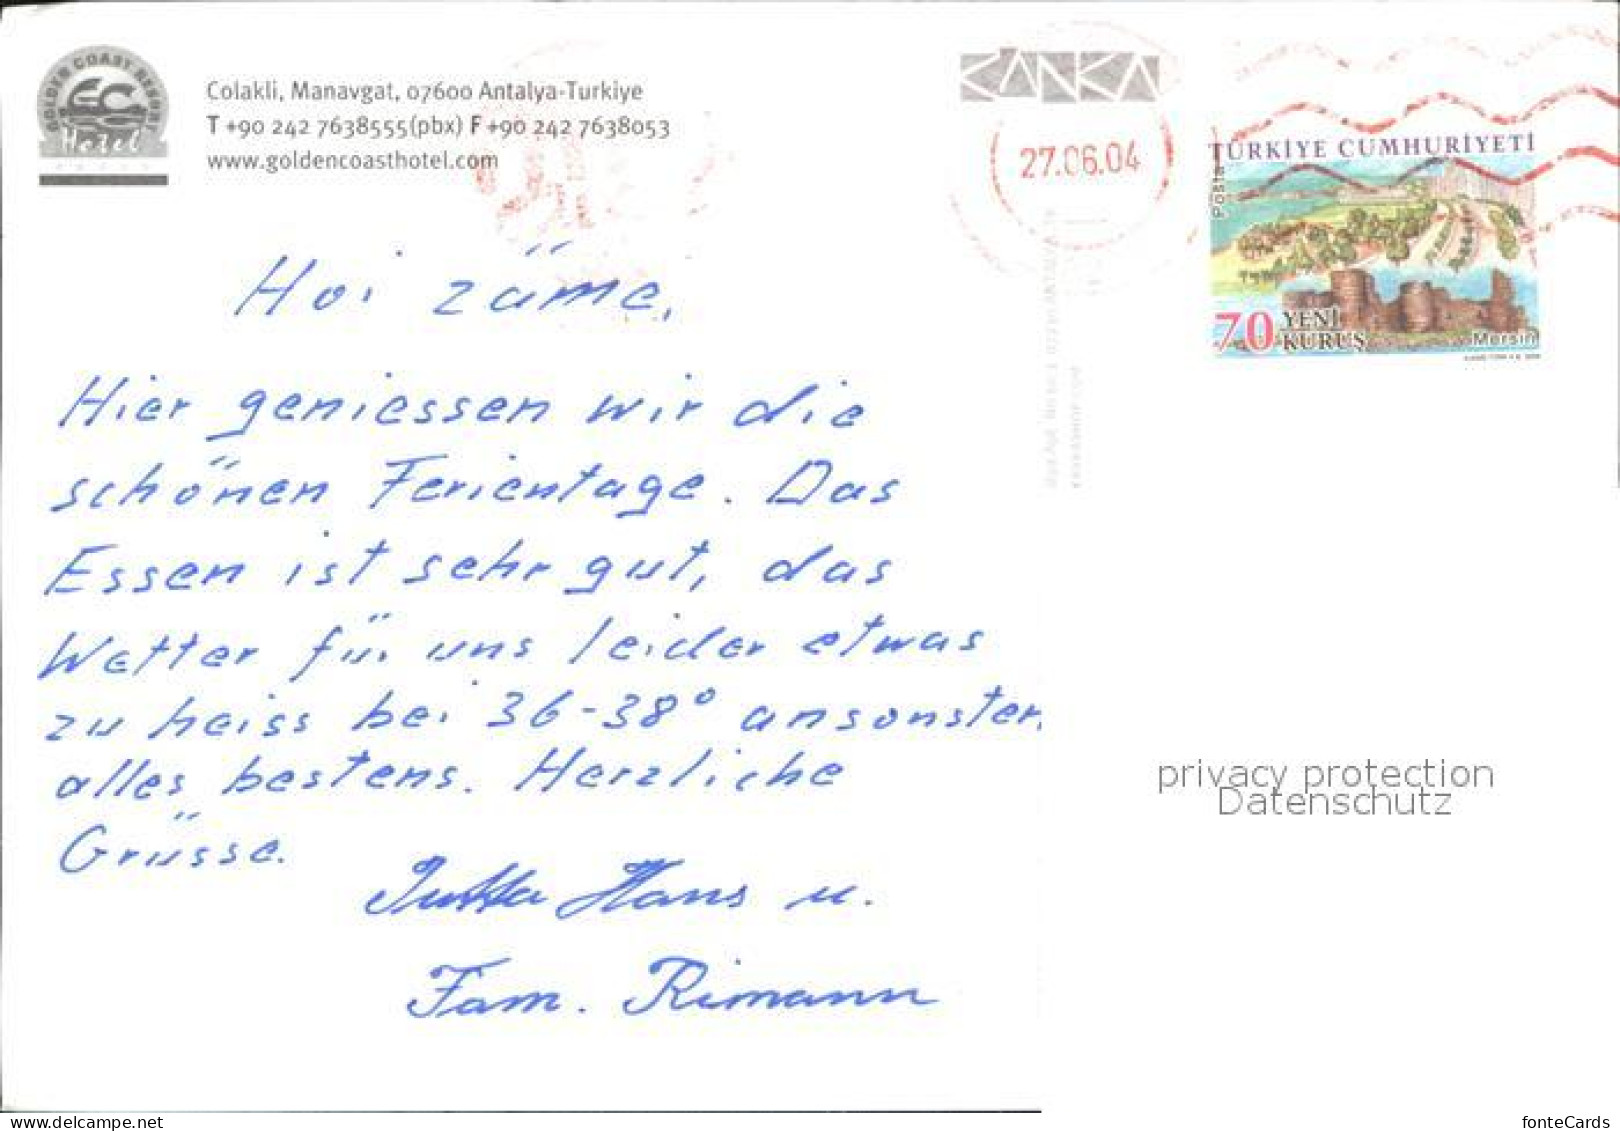 GOLDEN COAST RESORT
Hotel
Colakli, Manavgat, 07600 Antalya-Turkiye
T +90 242 7638555(pbx) F +90 242 7638053
www.goldencoasthotel.com
KANKA
27.06.04
TÜRKİYE CUMHURİYETİ
Posta
70 YENİ
KURUŞ
Mersin
Hoi zäme,
Hier geniessen wir die
schönen Ferientage. Das
Essen ist sehr gut, das
Wetter für uns leider etwas
zu heiss bei 36-38° ansonsten
alles bestens. Herzliche
Grüsse.
Jutta Hans u.
Fam. Rimann
privacy protection
Datenschutz
www.delcampe.net
fonteCards